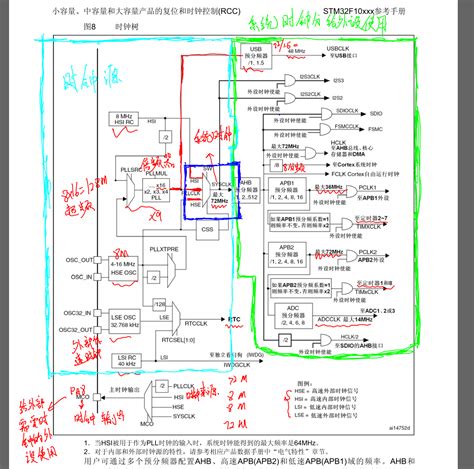 小容量、中容量和大容量产品的复位和时钟控制(RCC)
STM32F10xxx参考手册
图8 时钟树
系统时钟后给外设使用
时钟源
USB
预分频器
/1, 1.5
48 MHz
USBCLK
至USB接口
I2S3CLK
I2S3
外设时钟使能
I2S2CLK
I2S2
外设时钟使能
SDIOCLK
SDIO
外设时钟使能
FSMCCLK
FSMC
外设时钟使能
8 MHz
HSI RC
HSI
/2
倍频器
系统时钟
最大72MHz
HCLK
至AHB总线、核心
存储器和DMA
外设时钟使能
/8
至Cortex系统时钟
FCLK Cortex自由运行时钟
PLLSRC
PLLMUL
x16
x2, x3, x4
PLL
x9
SW
HSI
PLLCLK
HSE
SYSCLK
最大
72MHz
AHB
预分频器
/1, 2..512
CSS
APB1
预分频器
/1, 2, 4, 8, 16
最大36MHz
PCLK1
至APB1外设
外设时钟使能
如果APB1预分频系数=1
则频率不变,否则频率x2
至定时器2~7
TIMXCLK
外设时钟使能
8M
OSC_OUT
OSC_IN
4-16 MHz
HSE OSC
PLLXTPRE
/2
APB2
预分频器
/1, 2, 4, 8, 16
最大72MHz
PCLK2
至APB2外设
外设时钟使能
如果APB2预分频系数=1
则频率不变,否则频率x2
至定时器1和8
TIMxCLK
外设时钟使能
OSC32_IN
OSC32_OUT
LSE OSC
32.768 kHz
/128
LSE
RTCCLK
RTC
RTCSEL[1:0]
ADC
预分频器
/2, 4, 6, 8
至ADC1、2或3
ADCCLK 最大14MHz
/2
HCLK/2
至SDIO的AHB接口
外设时钟使能
LSI RC
40 kHz
LSI
至独立看门狗 (IWDG)
IWDGCLK
主时钟输出
MCO
MCO
/2
PLLCLK
HSI
HSE
SYSCLK
72 M
8 M
8 M
72 M
图例:
HSE = 高速外部时钟信号
HSI = 高速内部时钟信号
LSI = 低速内部时钟信号
LSE = 低速外部时钟信号
ai14752d
1. 当HSI被用于作为PLL时钟的输入时,系统时钟能得到的最大频率是64MHz。
2. 对于内部和外部时钟源的特性,请参考相应产品数据手册中“电气特性”章节。
用户可通过多个预分频器配置AHB、高速APB(APB2)和低速APB(APB1)域的频率。AHB和